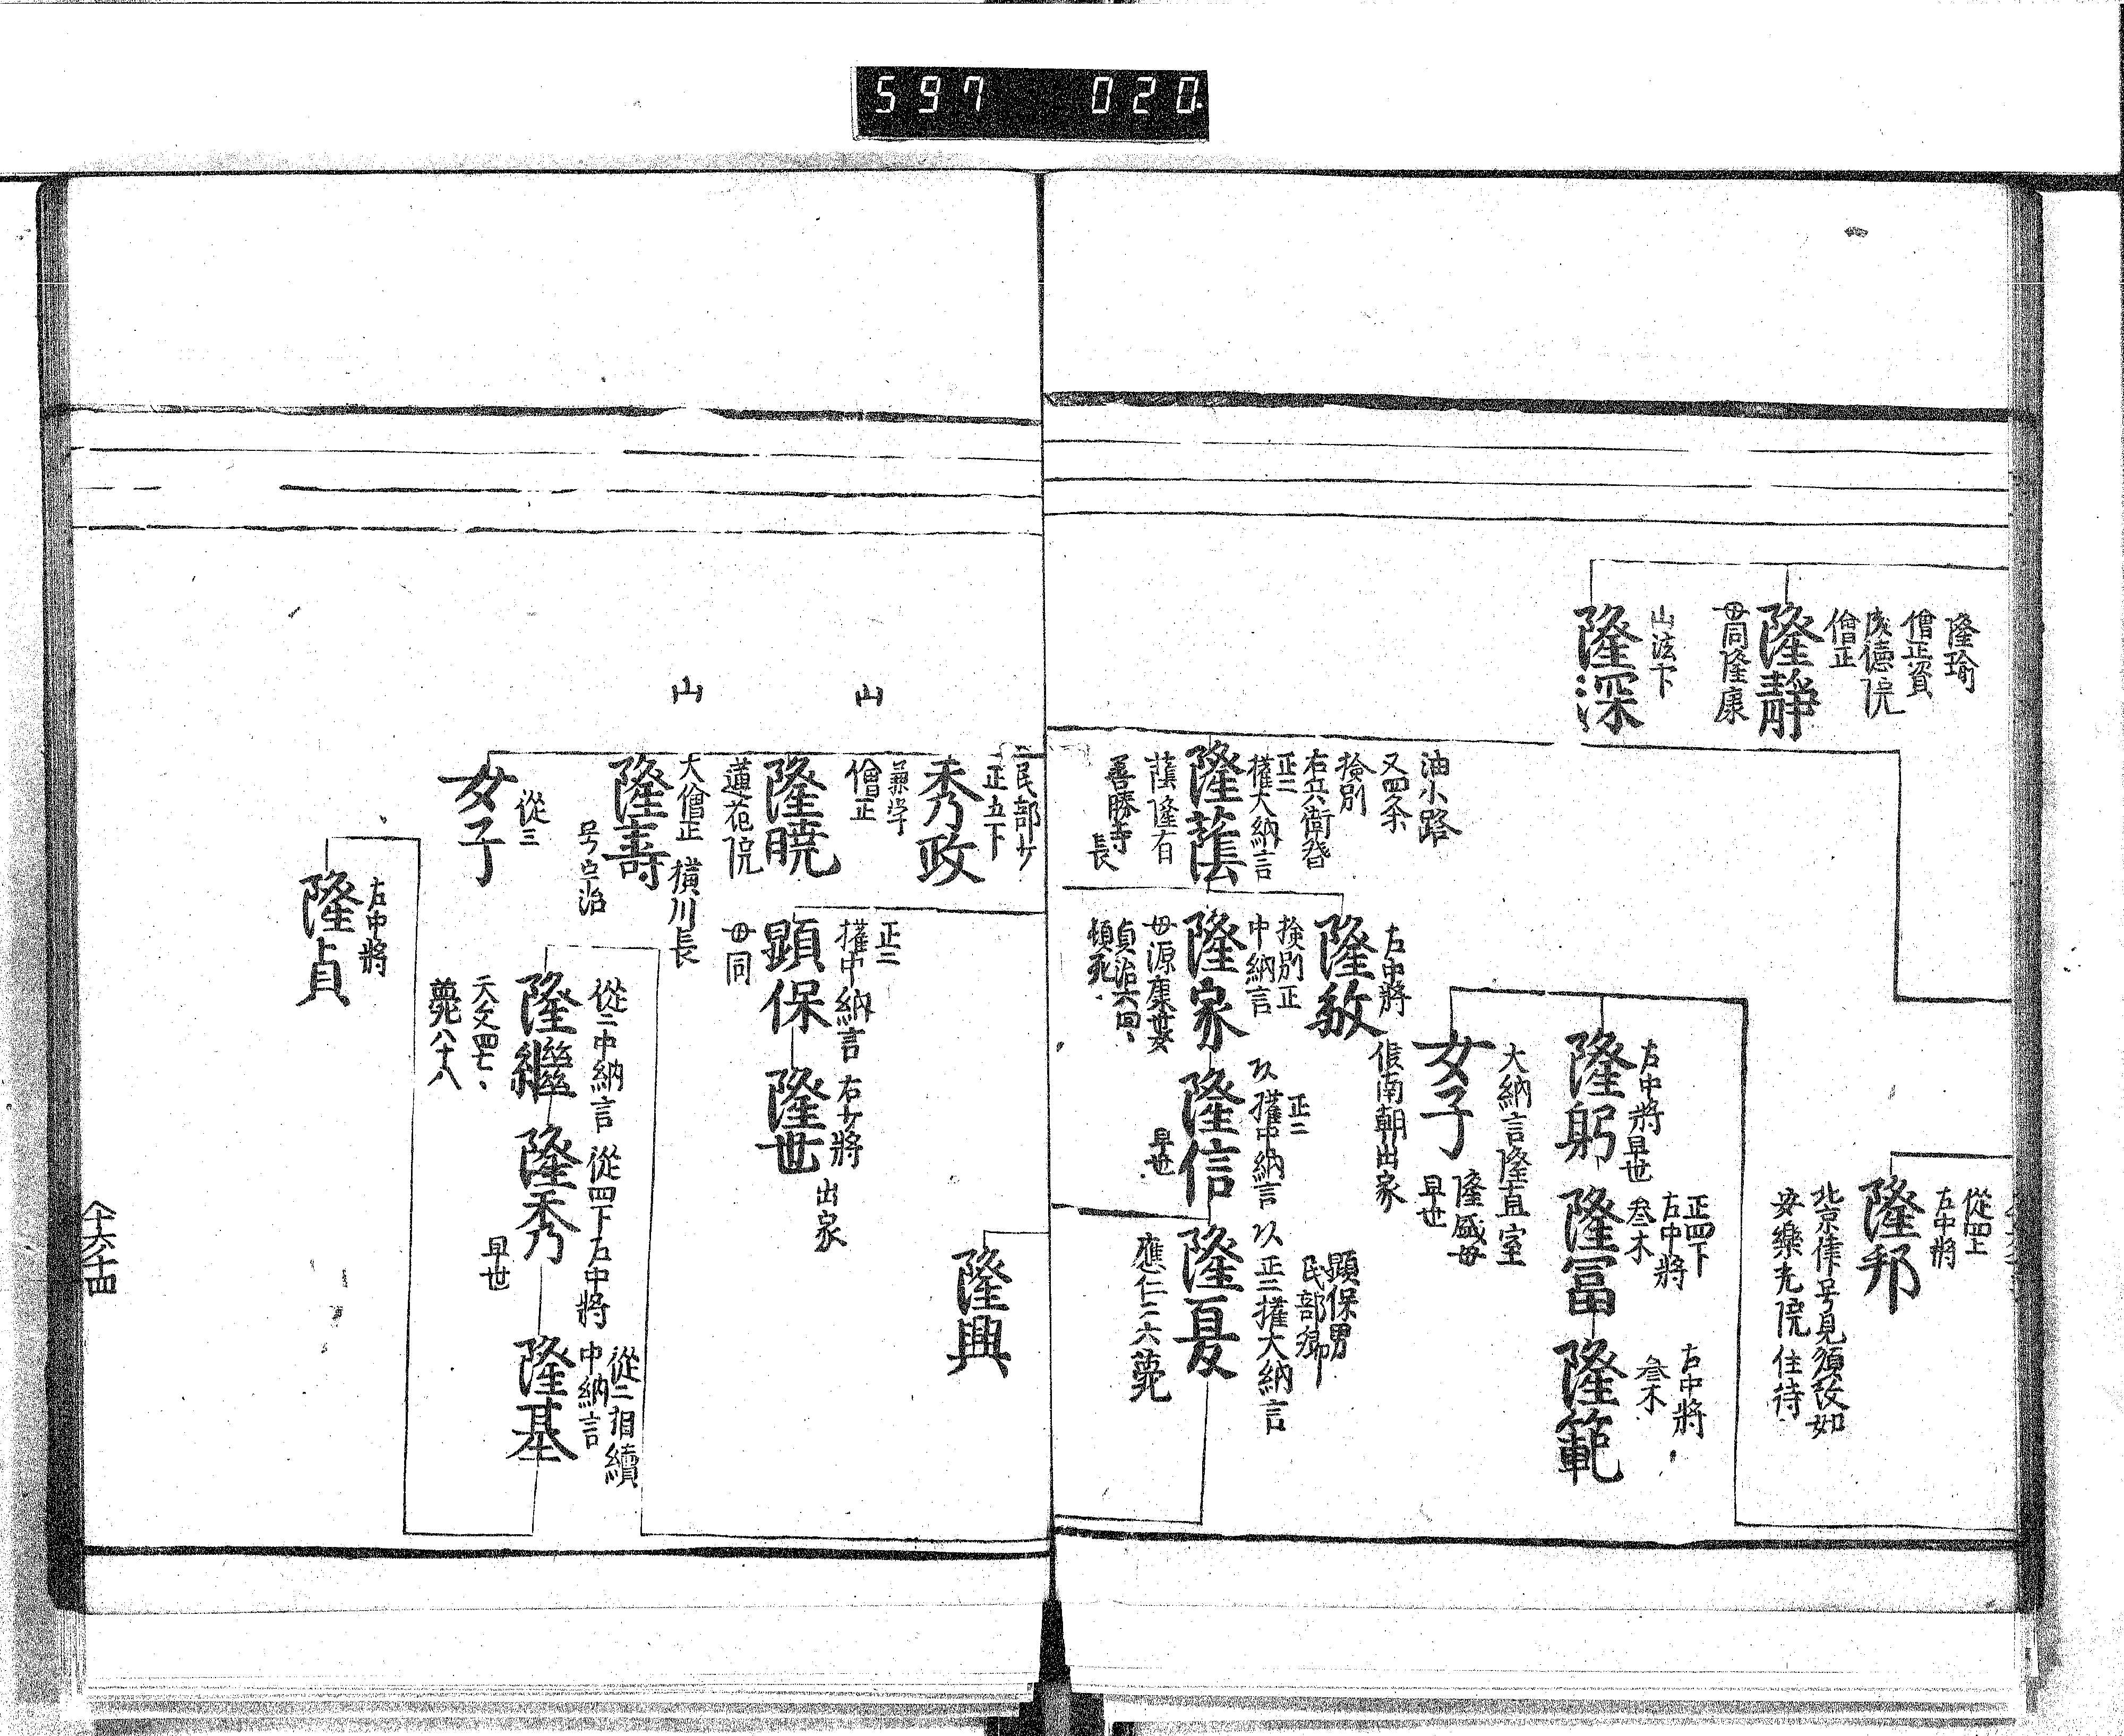 597 020
隆瑜
僧正資
僧正
隆静
母同隆康
山法下
隆深
油小路
又四条
検別
右兵衛督
正二
權大納言
隆蔭
蔭隆有
善勝寺
長
左中將
隆敦
候南朝出家
検別正
中納言
隆家
母源康世女
頓死
正二
權中納言
隆信
早世
顕保男
民部卿
正三權大納言
隆夏
應仁二六薨
左中將早世
隆躬
正四下
左中將
叅木
隆冨
左中將
叅木
隆範
大納言隆直室
女子
隆盛母
早世
從四上
左中將
隆邦
北京律号見須改如
安樂光院住持
民部少
正五下
秀政
山
兼学
僧正
隆曉
蓮花院
山
大僧正
横川長
隆壽
号宇治
從三
女子
正二
權中納言
顕保
母同
右少將
隆世
出家
隆興
從二中納言
隆繼
天文四七
薨八十八
從四下左中將
隆秀
早世
從二相續
中納言
隆基
左中將
隆貞